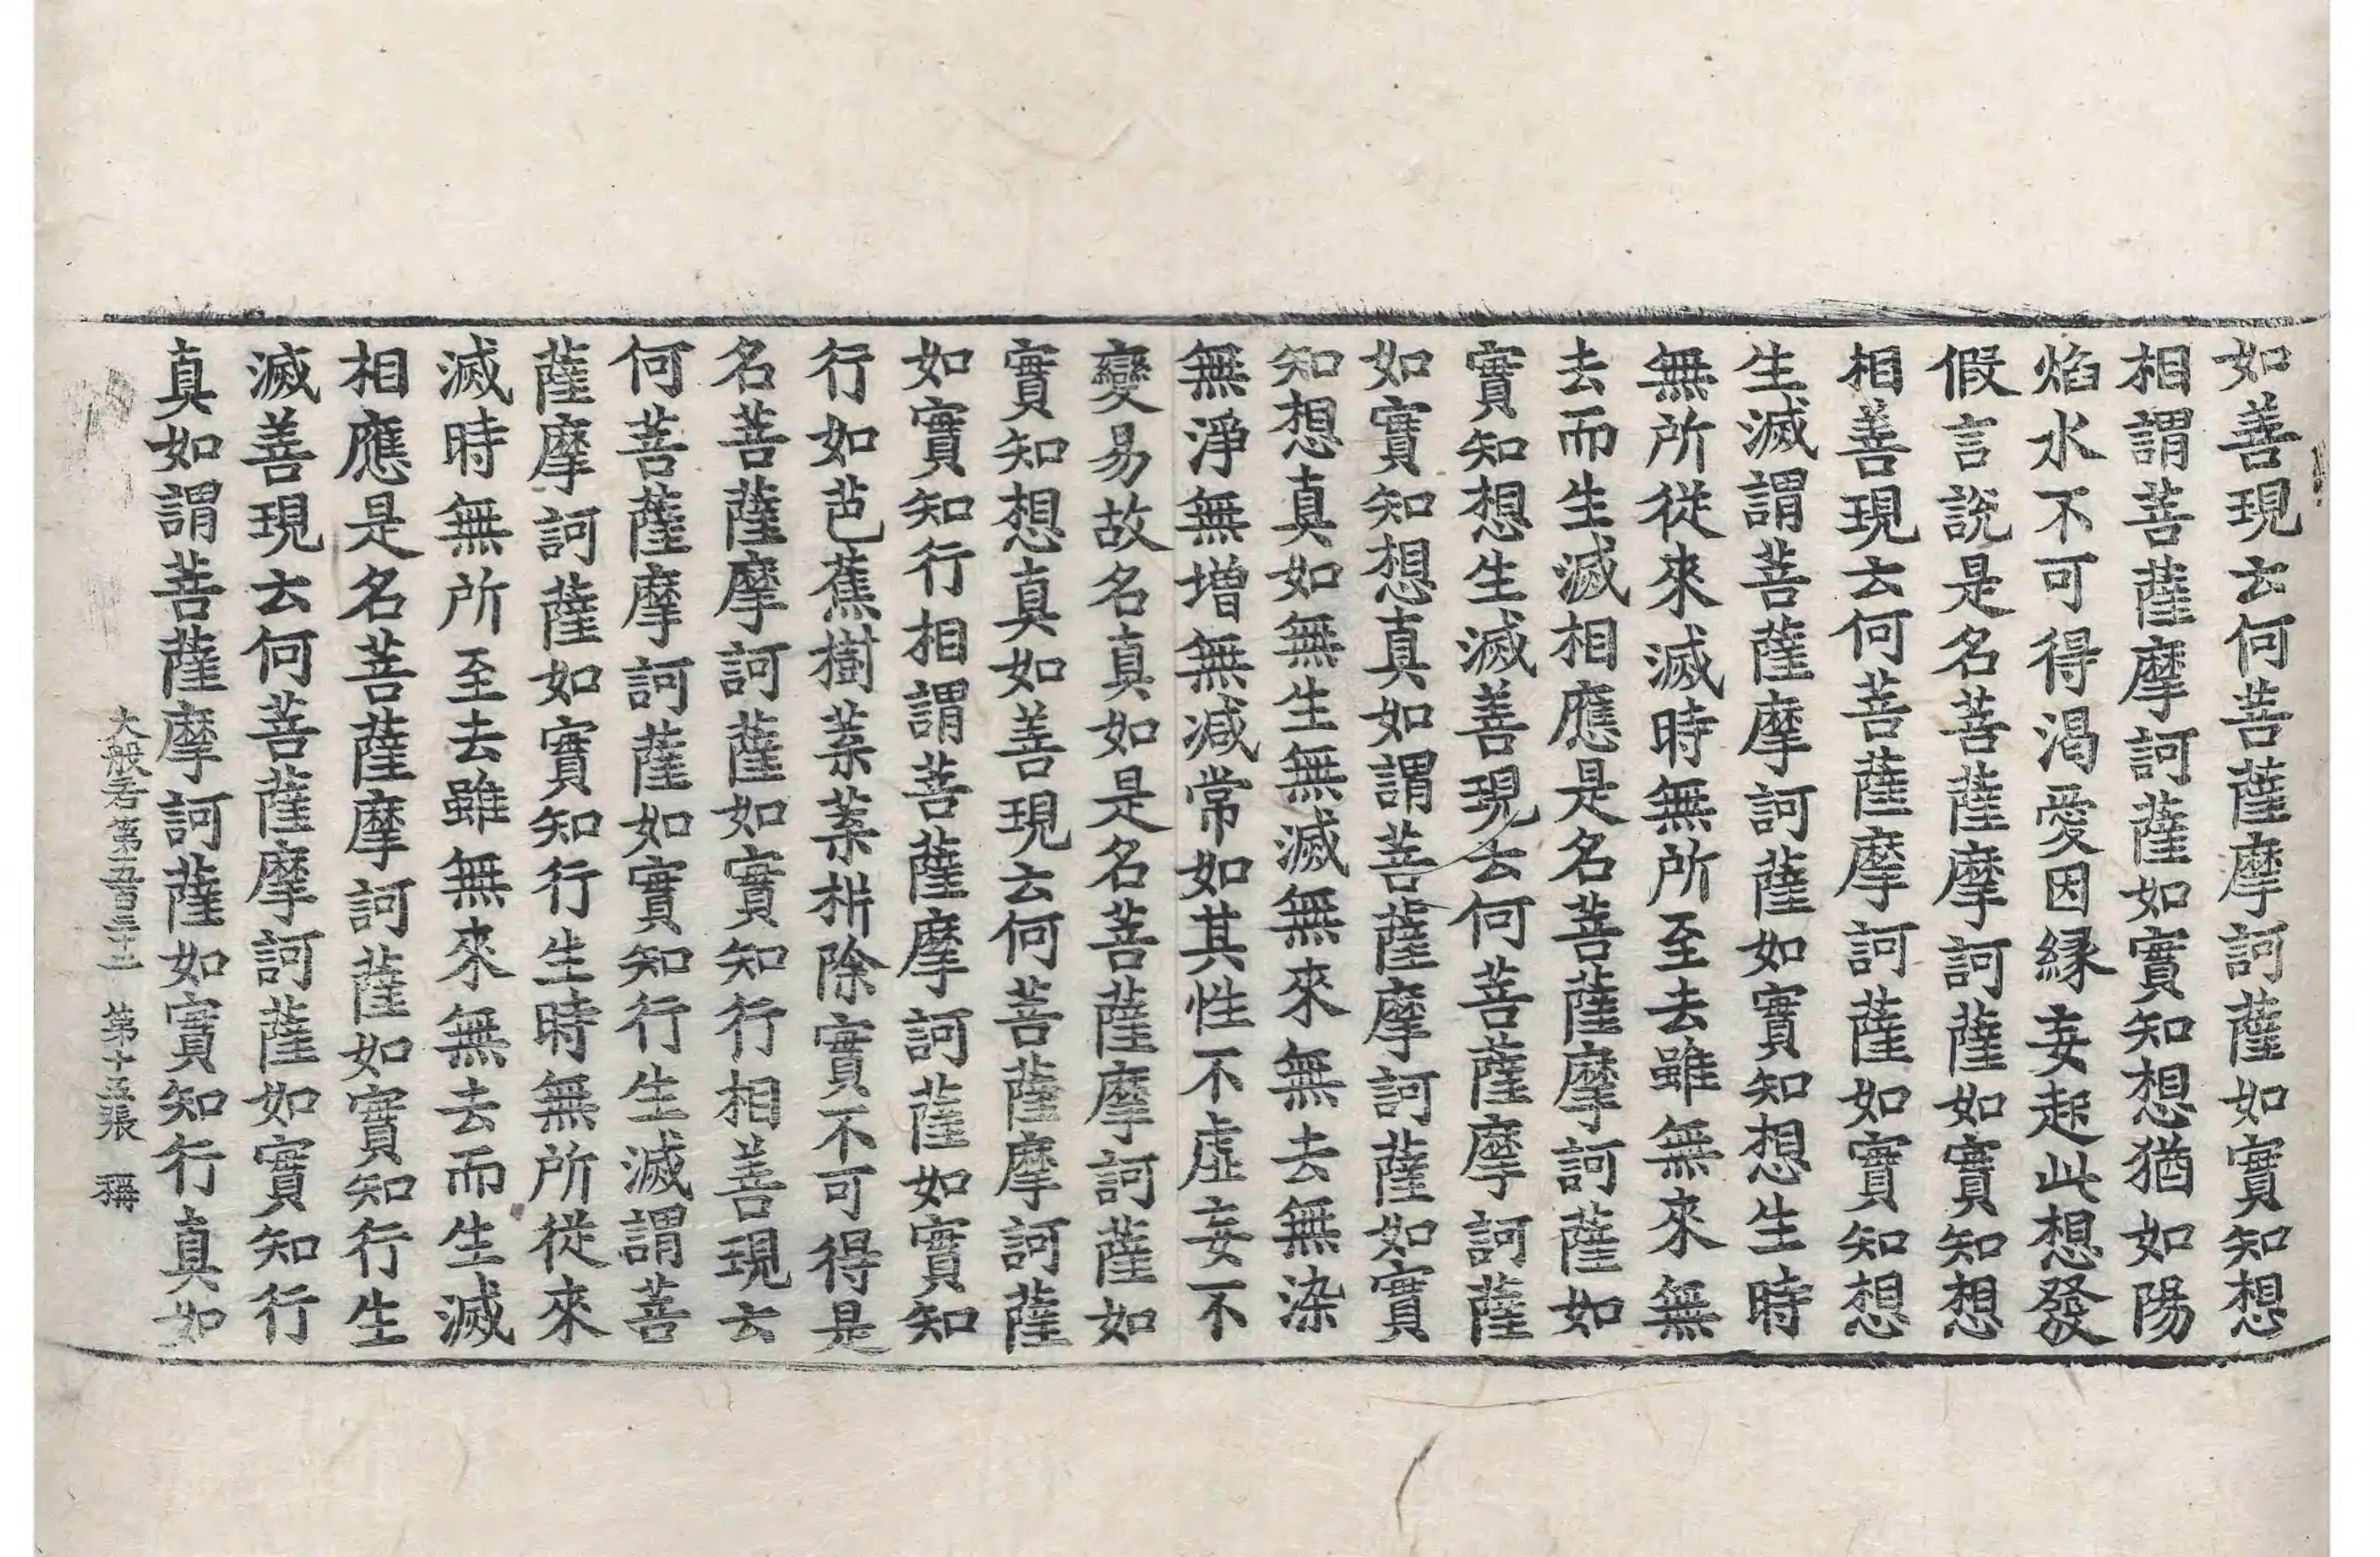 如善現云何菩薩摩訶薩如實知想
相謂菩薩摩訶薩如實知想猶如陽
焰水不可得渴愛因緣妄起此想發
假言說是名菩薩摩訶薩如實知想
相善現云何菩薩摩訶薩如實知想
生滅謂菩薩摩訶薩如實知想生時
無所從來滅時無所至去雖無來無
去而生滅相應是名菩薩摩訶薩如
實知想生滅善現云何菩薩摩訶薩
如實知想真如謂菩薩摩訶薩如實
知想真如無生無滅無來無去無染
無淨無增無減常如其性不虛妄不
變易故名真如是名菩薩摩訶薩如
實知想真如善現云何菩薩摩訶薩
如實知行相謂菩薩摩訶薩如實知
行如芭蕉樹葉葉析除實不可得是
名菩薩摩訶薩如實知行相善現云
何菩薩摩訶薩如實知行生滅謂菩
薩摩訶薩如實知行生時無所從來
滅時無所至去雖無來無去而生滅
相應是名菩薩摩訶薩如實知行生
滅善現云何菩薩摩訶薩如實知行
真如謂菩薩摩訶薩如實知行真如
大般若第五百三十二 第十五張 稱